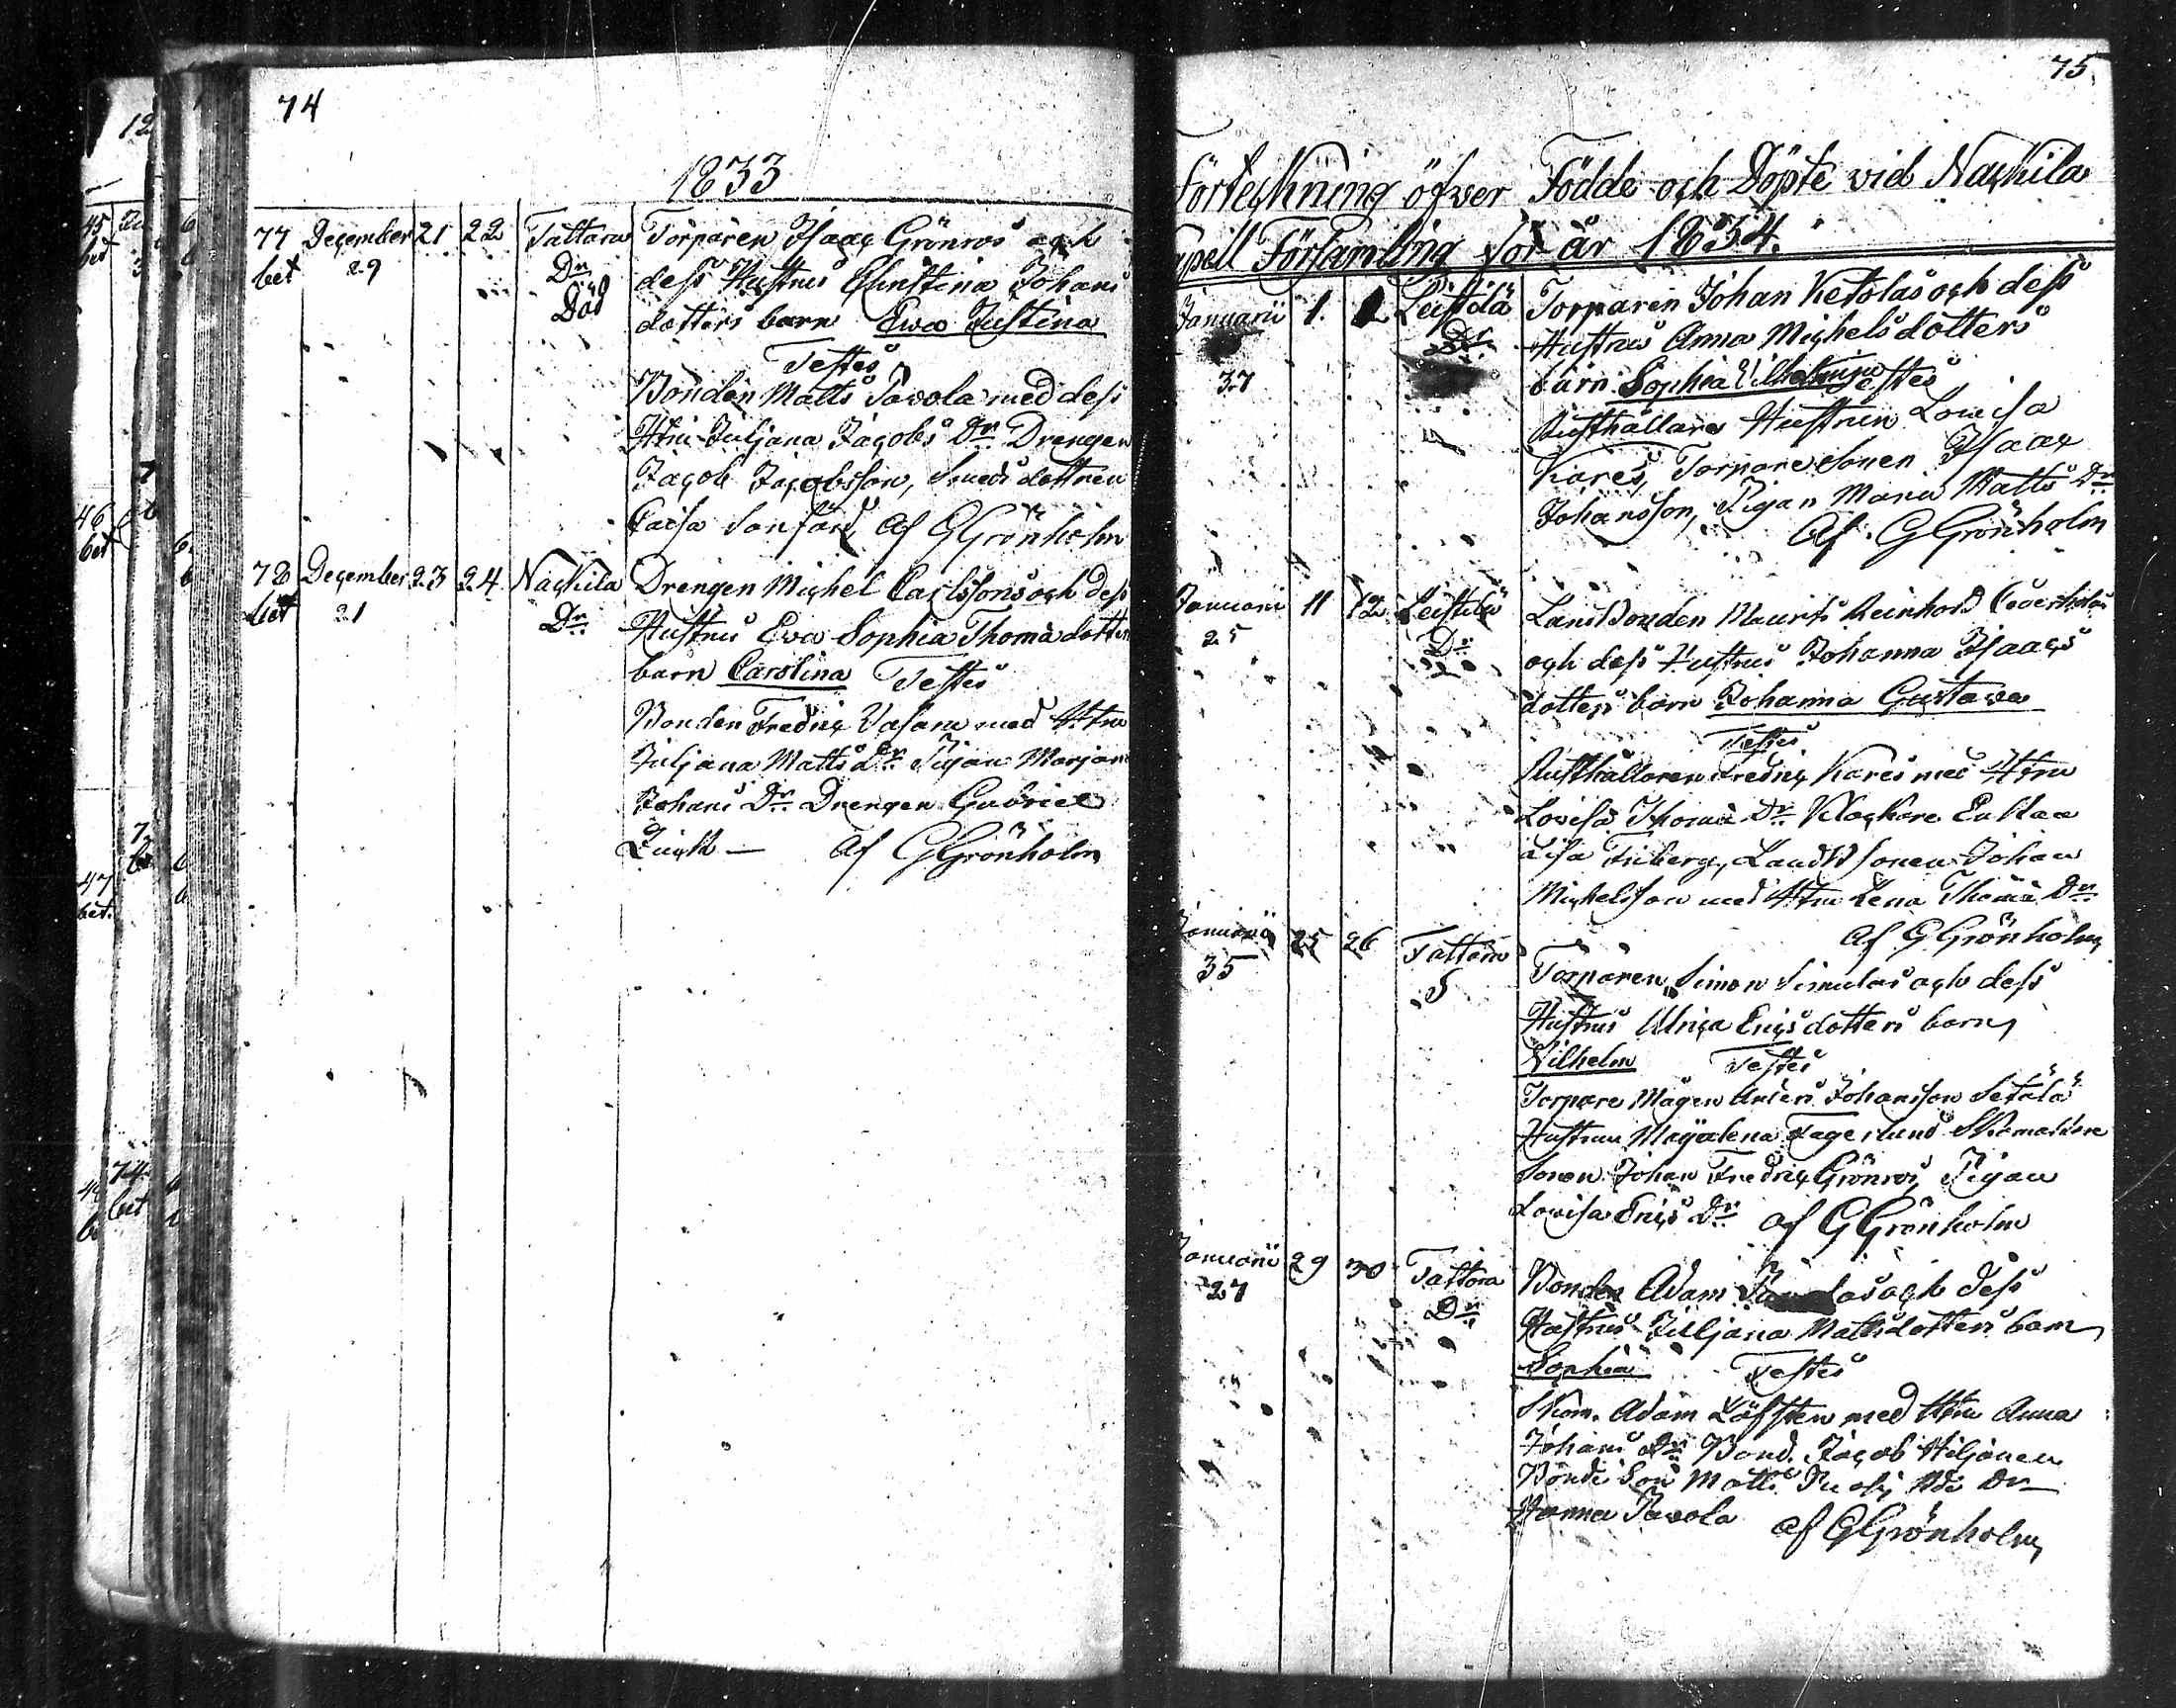 74
1833
77 December 21 22 Tattara Torparen Isaac Grönroos och
bet 29 Dr dess Hustrus Christina Johans
Död dotters barn Ewa Justina
Testes
Bonden Matts Tavola med dess
Htru Juljana Jacobs Dr Drengen
Jacob Jacobsson, Smeds dottren
Caisa af GGrönholm
78 December 23 24 Nackila Drengen Michel Carlssons och dess
bet 21 Dr Hustrus Eva Sophia Thomadotters
barn Carolina Testes
Bonden Fredric Vasara med Htru
Juljana Matts Dr Pigan Marjana
Johans Dr Drengen Gabriel
af GGrönholm
75
Förteckning öfver Födde och Döpte vid Nackila
apell Församling för år 1834.
Januarii 1. 2 Leistilä Torparen Johan Ketolas och dess
37 Dr Hustrus Anna Michelsdotters
barn Sophia Vilhelmina Testes
Rusthållare Hustrun Lowisa
Kares, Torpare Sonen Isaac
Johansson, Pigan Maria Matts Dr
Af GGrönholm
Januarii 11 12 Leistilä Landbonden Maurits Reinhold
25 Dr och dess Hustrus Johanna Isaacs
dotters barn Johanna Gustava
Testes
Rusthållaren Fredric Kares med Htru
Lovisa Thomæ Dr Klockare Enkan
Lisa Friberg, Landb Sonen Johan
Michelsson med Htru Lena Thomæ Dr
af GGrönholm
Januarii 25 26 Tattara Torparen Simon Simulas och dess
35 S Hustrus Ulrica Ericsdotters barn
Vilhelm Testes
Torpare Mågen Anders Johansson Setälä
Hustrun Magdalena Fagerlund Skomakare
Sonen Johan Fredric Grönros, Pigan
Lowisa Erics Dr af GGrönholm
Januarii 29 30 Tattara Bonden Adam och dess
27 Dr Hustrus Juljana Mattsdotters barn
Sophia Testes
Skom. Adam Löfsten med Htru Anna
Johans Dr Bond. Jacob Hiljanen
Bonde Son Matts Bde Dr
Hanna Tavola af GGrönholm